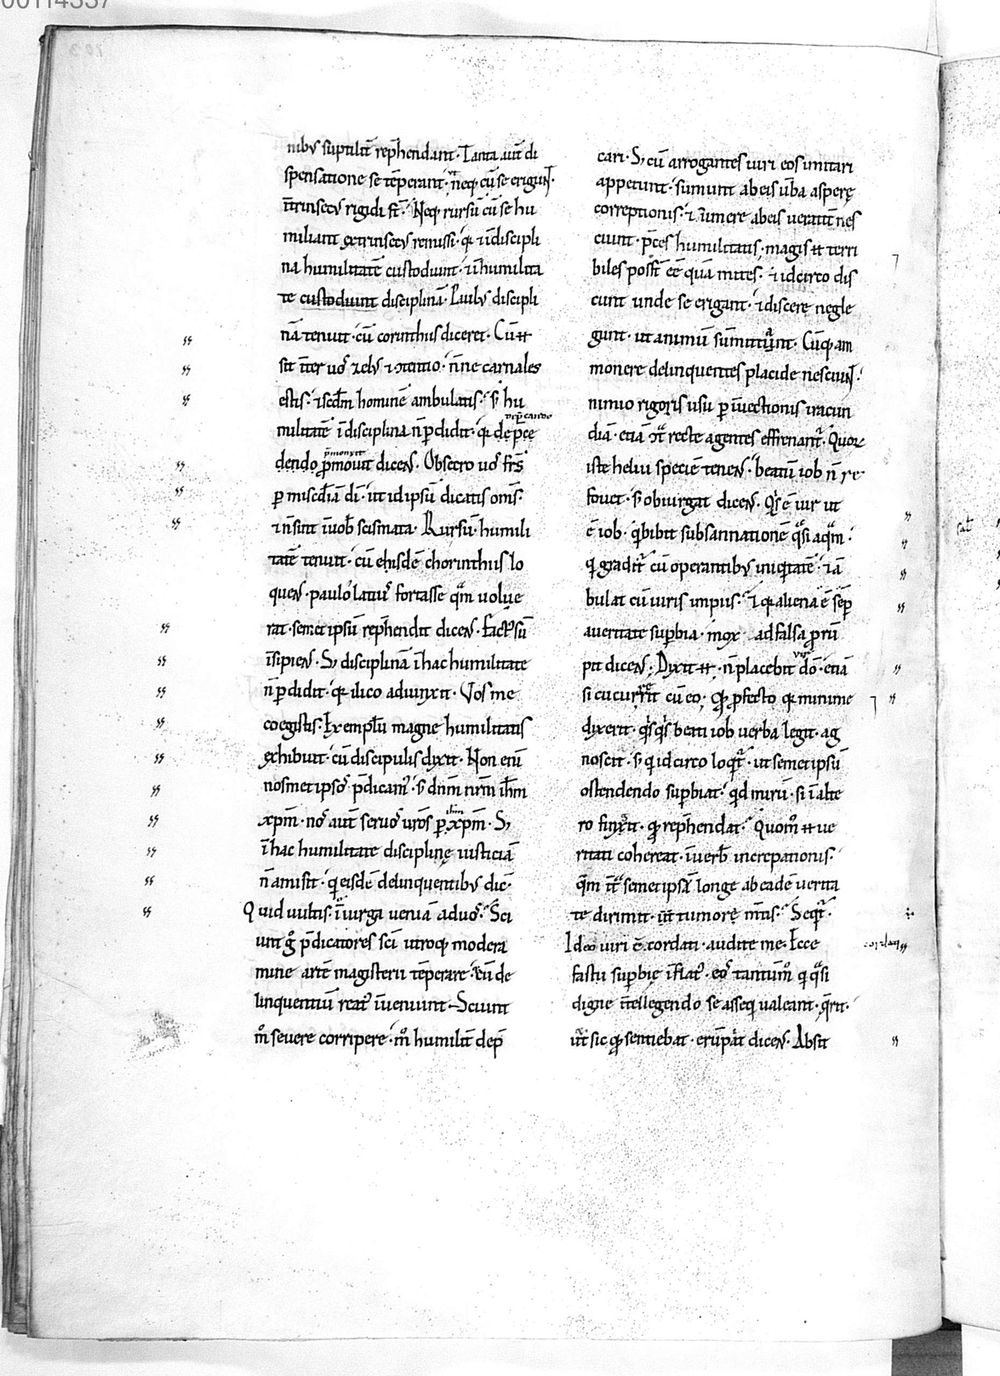 00114337
nibꝰ suptilit̄ rep̄hendant. Tanta aut̄ di
spensatione se tēperant. ut neq; cū se erigunt.
īt̄rinsecꝰ rigidi st̄. Neq; rursū cū se hu
miliant extrinsecꝰ remissi. q̄ & ī discipli
na humilitatē custodiunt. & ī humilita
te custodiunt disciplinā. Paulꝰ discipli
nā tenuit. cū corinthiis diceret. Cū H̄
sit int̄ uos zelꝰ & ꝯtentio. n̄ne carnales
estis. & scdm̄ hominē ambulatis. s; hu
militatē ī disciplina n̄ ꝑdidit. q̄ dep̄ce
dep̄cando
dendo p̄mouit dicens. Obsecro uos fr̄s
p̄monuit
ꝑ misc̄dīā dī. ut idipsū dicatis om̄s.
& n̄ sint ī uob̄ scismata. Rursū humili
tatē tenuit. cū eisdē chorinthiis lo
quens. paulo latiꝰ fortasse qm̄ uolue
rat. semetipsū rep̄hendit dicens. Factꝰ sū
īsipiens. S; disciplinā ī hac humilitate
n̄ ꝑdidit. q̄ ilico adiunxit. Vos me
coegistis. Exemplū magne humilitatis
exhibuit. cū discipulis dixit. Non enī
nosmetipsos p̄dicamꝰ. s; dn̄m nr̄m ih̄m
xp̄m. nos aut̄ seruos uros ꝑ xp̄m. S;
ih̄m
ī hac humilitate disciplinę iusticiā
n̄ amisit. q̄ eisdē delinquentibꝰ dic̄.
Quid uultis. ī uirga ueniā ad uos. Sci
unt ḡ p̄dicatores sc̄i utroq; modera
mine artē magisterii tēperare. & cū de
linquentiū reatꝰ īueniunt. Sciunt
m̊ seuere corripere. m̊ humilit̄ dep̄
cari. S; cū arrogantes uiri eos imitari
appetunt. sumunt ab eis uerba asperę
correptionis. & sumere ab eis ueritatē nes
ciunt. p̄ces humilitatis. magis H̄ terri
biles poss̄t ēē quā mites. & idcirco dis
cunt unde se erigant. & discere negle
gunt. ut animū sūmittant. Cūq; am
monere delinquentes placide nesciunt.
nimio rigoris usu ꝑ īuectionis iracun
diā. etiā ꝯt̄ recte agentes effrenant̄. Quor
iste heliu speciē tenens. beatū iob n̄ re
fouet. s; obiurgat dicens. Qs̄ ē uir ut
ē iob. q̄ bibit subsannationē q̄si aq̄m.
q̄ gradit̄ cū operantibꝰ iniq̄tatē. & ā
bulat cū uiris impiis. & q̄ aliena ē sēp̄
a ueritate supbia. mox ad falsa prū
pit dicens. Dixit H̄. n̄ placebit dō. etiā
uir
si cucurrerit cū eo. Qđ ꝓfecto q̄ minime
dixerit. qs̄qs̄ beati iob uerba legit. ag
noscit. s; q̄ idcirco loqt̄. ut semetipsū
ostendendo supbiat. qd mirū. si ī alte
ro finxit. qđ rep̄hendat. Quom̊ H̄ ue
ritati cohereat. ī uerb̄ increpationis.
qm̄ int̄ semetipsā longe ab eadē uerita
te dirimit. ut̄ tumore m̄tis. Seqt̄.
Ideo uiri cordati. audite me. Ecce
cordati
fastu supbię īflatꝰ. eos tantūm̊ q̄ q̄si
digne īt̄ellegendo se asseq̄ ualeant. q̄rit.
ut̄ sic qđ sentiebat. erūpat dicens. Absit